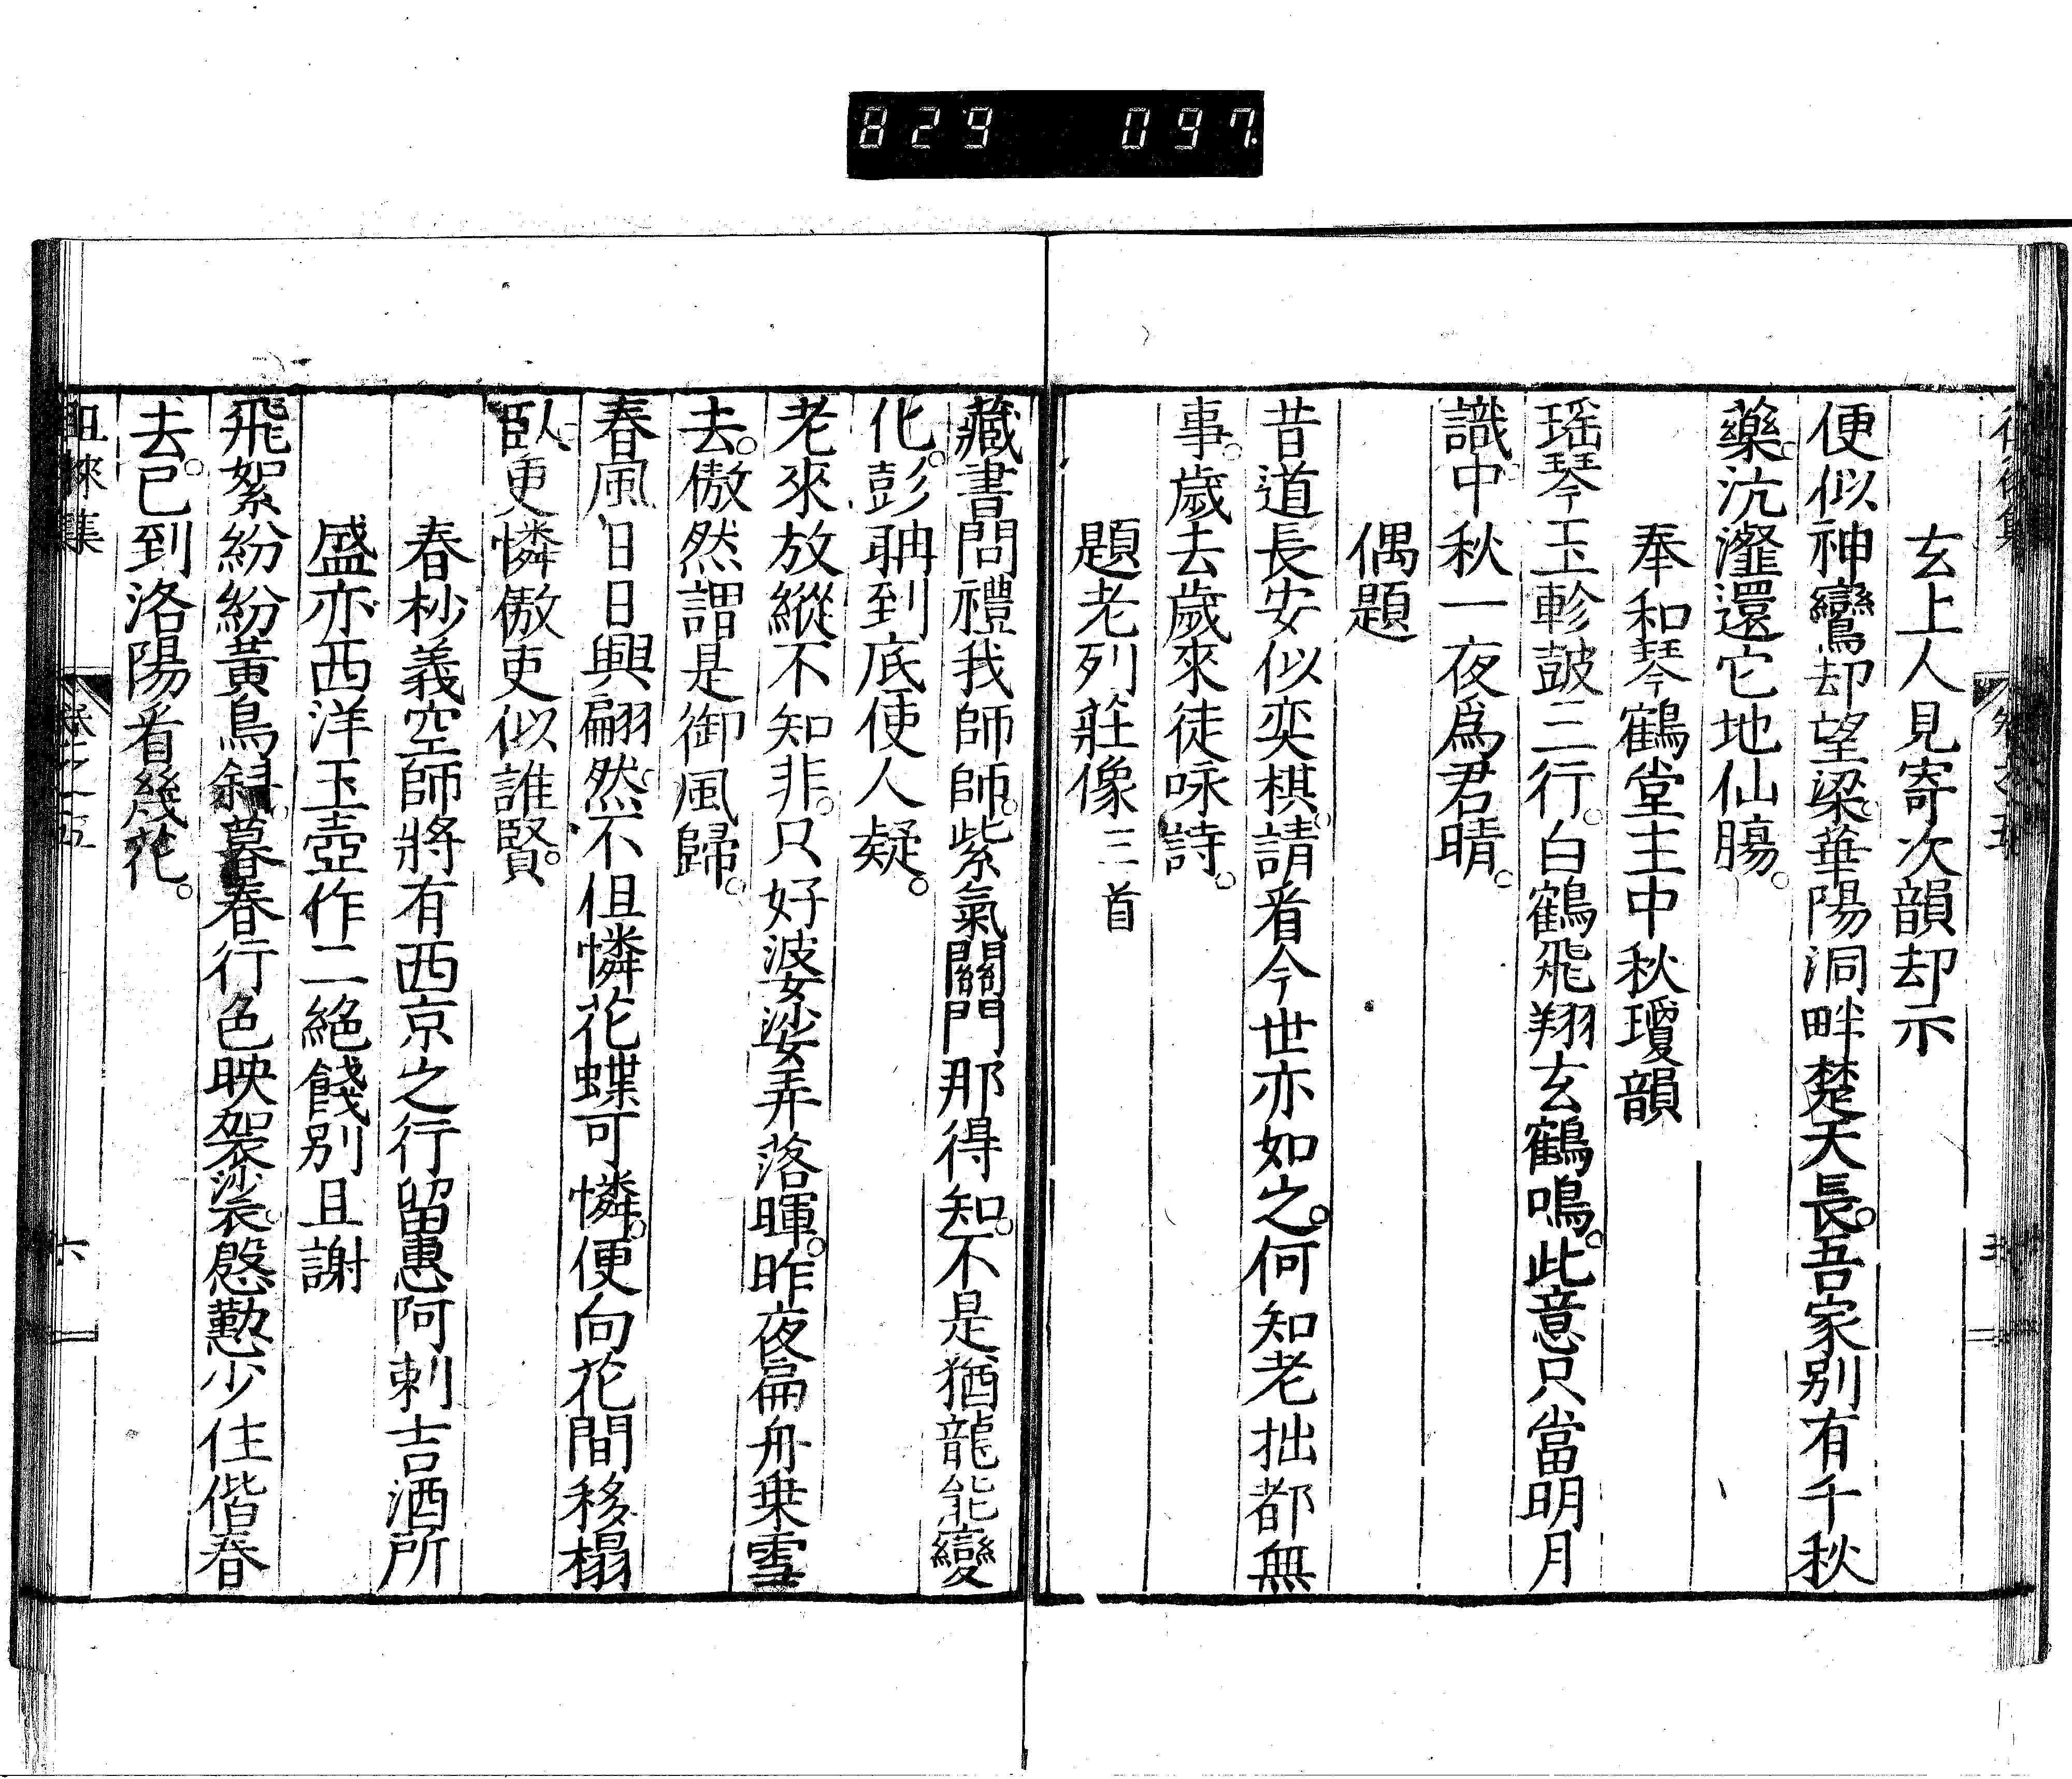 829 097
玄上人見寄次韻却示
便似神鸞却望梁。華陽洞畔楚天長。吾家別有千秋
藥。沆瀣還它地仙腸。
奉和琴鶴堂主中秋瓊韻
瑶琴玉軫皷三行。白鶴飛翔玄鶴鳴。此意只當明月
識。中秋一夜爲君晴。
偶題
昔道長安似奕棋。請看今世亦如之。何知老拙都無
事。歲去歲來徒咏詩。
題老列莊像三首
藏書問禮我師師。紫氣關門那得知。不是猶龍能變
化。彭聃到底使人疑。
老來放縱不知非。只好婆娑弄落暉。昨夜扁舟乗雪
去。傲然謂是御風歸。
春風日日興翩然。不但憐花蝶可憐。便向花間移榻
臥。更憐傲吏似誰賢。
春杪義空師將有西京之行留惠阿剌吉酒所
盛亦西洋玉壺作二絕餞別且謝
飛絮紛紛黃鳥斜。暮春行色映袈裟。慇懃少住偕春
去。已到洛陽看幾花。
徂徠集
卷之五
六